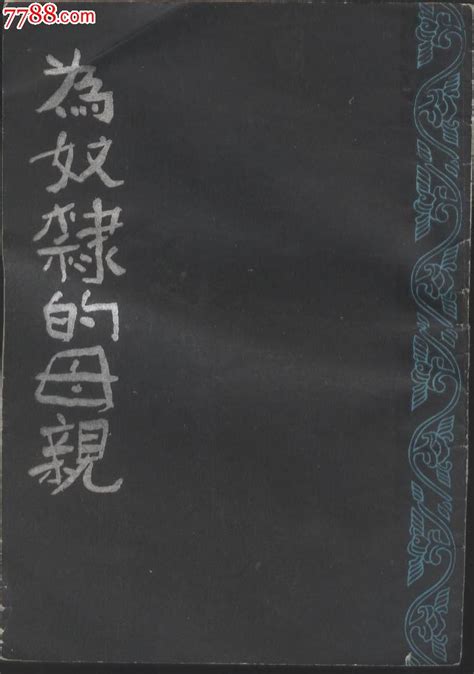 7788.com
為奴隸的母親